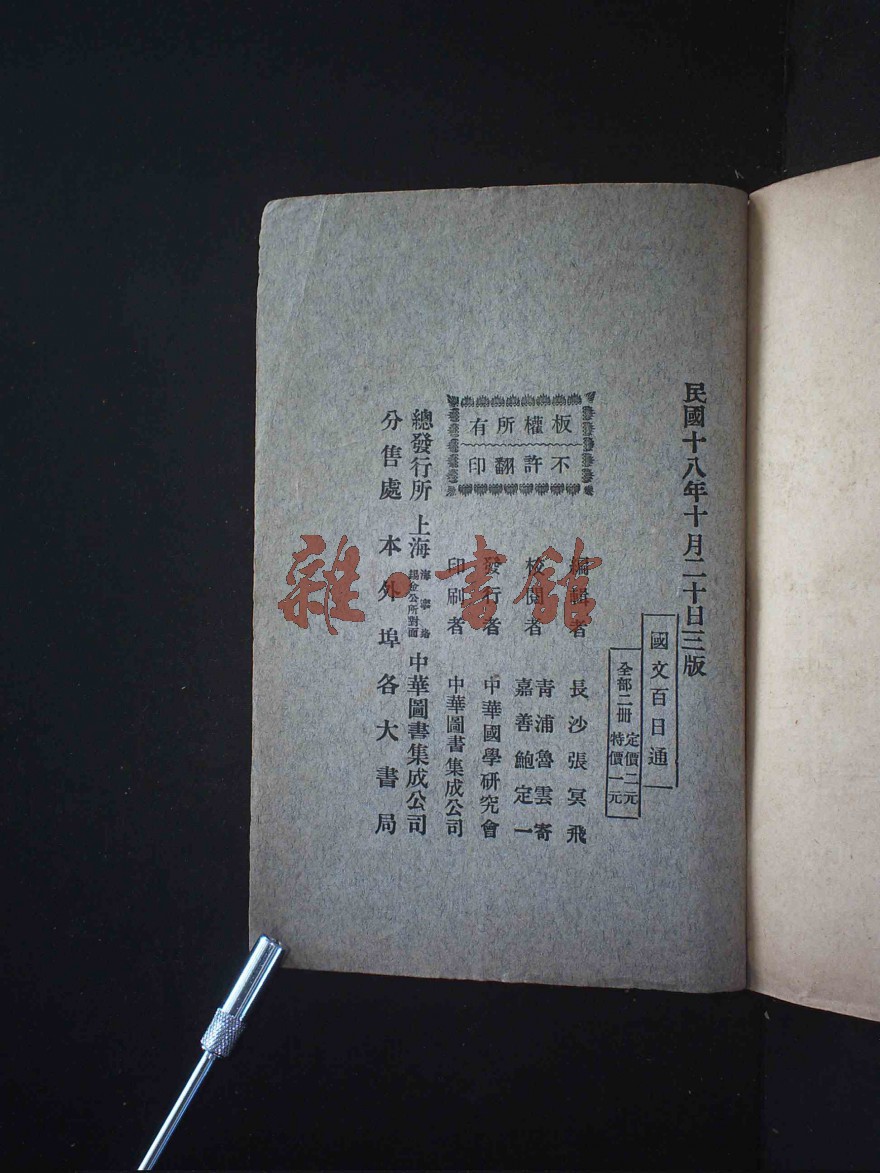 民國十八年十月二十日三版
國文百日通
全部二冊 定價二元
特價一元
板權所有
不許翻印
編輯者 長沙張冥飛
校閱者 青浦魯雲寄
嘉善鮑定一
發行者 中華國學研究會
印刷者 中華圖書集成公司
總發行所 上海 海寧路 錫金公所對面 中華圖書集成公司
分售處 本外埠各大書局
雜·書館